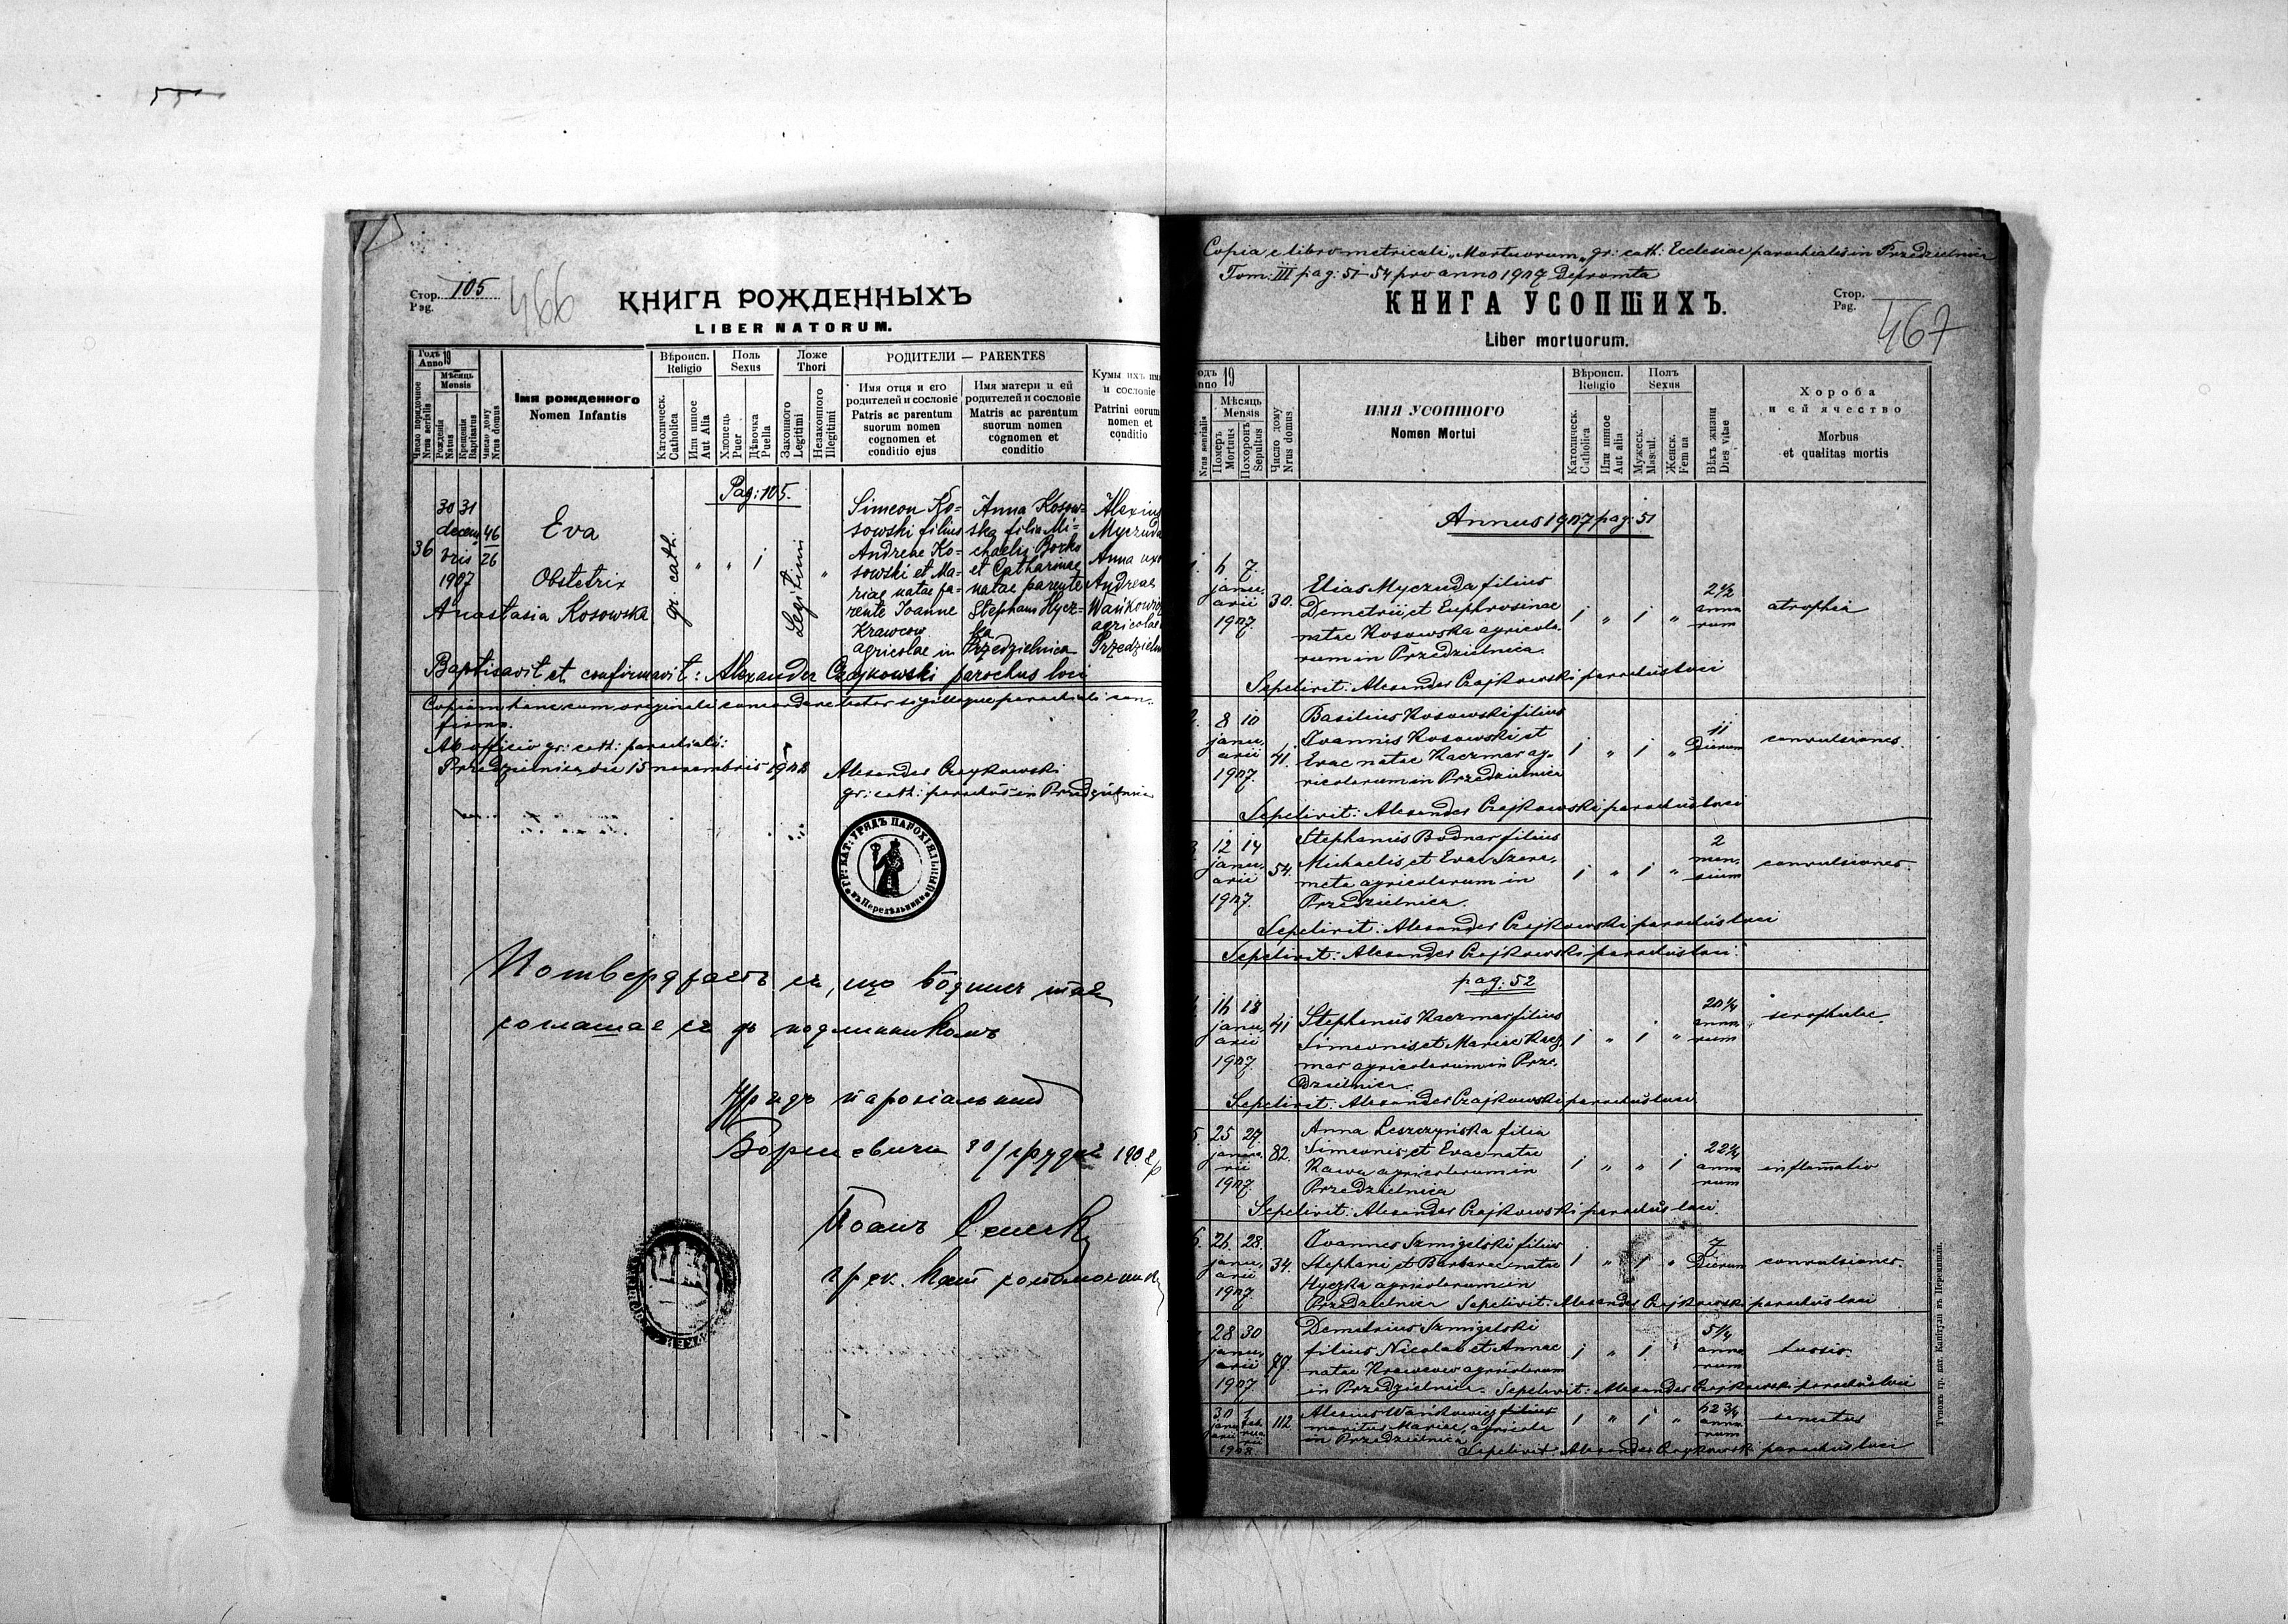 Стор. 105
Pag.
466
КНИГА РОЖДЕННЫХЪ
LIBER NATORUM.
Годъ 19
Anno
Мѣсяць
Mensis
Число порядочное
Nrus serialis
Рожденія
Natus
Крещенія
Baptisatus
Число дому
Nrus domus
Імя рожденного
Nomen Infantis
Вѣроисп.
Religio
Католическ.
Catholica
Или инное
Aut Alia
Поль
Sexus
Хлопець
Puer
Дѣвочка
Puella
Ложе
Thori
Законного
Legitimi
Незаконного
Illegitimi
РОДИТЕЛИ — PARENTES
Имя отця и его
родителей и сословіе
Patris ac parentum
suorum nomen
cognomen et
conditio ejus
Имя матери и ей
родителей и сословіе
Matris ac parentum
suorum nomen
cognomen et
conditio
Кумы ихъ им
и сословіе
Patrini eorum
nomen et
conditio
Pag: 105.
36
30 31
decem
bris
1907
46
26
Eva
Obstetrix
Anastasia Kosowska
gr. cath.
" " i
Legitimi
"
Simeon Ko-
sowski filius
Andreae Ko-
sowski et Ma-
riae natae pa-
rente Joanne
Krawcow
agricolae in
Anna Kosow-
ska filia Mi-
chaelis Borko
et Catharinae
natae parente
Stephano Hycz-
ka
Przedzielnica
Alexius
Myczuda
Anna uxo
Andreae
Wańkowicz
agricolae
Przedzieln
Baptisavit et confirmavit: Alexander Czajkowski parochus loci
Copiam hanc cum originali concordare testor sigilloque parochiali con-
firmo.
Ab officio gr: cath: parochiali:
Przedzielnica die 15 novembris 1908
Alexander Czajkowski
gr: cath: parochus in Przedzielnica
ГР: КАТ: УРЯДЪ ПАРОХІЯЛЬНЫЙ
въ Передѣльници
Потверджаєсь ся, що водпись тай
соглашає ся зъ подлинникомъ
Урядъ парохіальный
30/грудня 1908
Іоанъ
грек. кат
Copia e libro metricali „Mortuorum„ gr: cath: Ecclesiae parochialis in Przedzielnica
Tom: III pag: 51-54 pro anno 1907 Depromta
КНИГА УСОПШИХЪ.
Liber mortuorum.
Стор.
Pag.
467
одъ
nno 19
Мѣсяць
Mensis
Nrus serialis
Померъ
Mortuus
Похоронъ
Sepultus
Число дому
Nrus domus
ИМЯ УСОПШОГО
Nomen Mortui
Вѣроисп.
Religio
Католическ.
Catholica
Или инное
Aut alia
Полъ
Sexus
Мужеск.
Mascul.
Женск.
Femina
Вѣкъ жизни
Dies vitae
Хороба
и ей ячество
Morbus
et qualitas mortis
Annus 1907 pag: 51
6 7.
janu-
arii
1907.
30.
Elias Myczuda filius
Demetrii et Euphrosinae
natae Kosowska agricola-
rum in Przedzielnica.
i " i "
2 1/2
anno
rum
atrophia
Sepelivit: Alexander Czajkowski parochus loci
8 10
janu-
arii
1907.
41.
Basilius Kosowski filius
Joannis Kosowski et
Evae natae Kaczmar ag-
ricolarum in Przedzielnica
i " i "
11
Dierum
convulsiones.
Sepelivit: Alexander Czajkowski parochus loci
12 14
janu-
arii
1907.
54.
Stephanus Bodnar filius
Michaelis et Evae Szere-
meta agricolarum in
Przedzielnica.
i " i "
2
men-
sium
convulsiones.
Sepelivit: Alexander Czajkowski parochus loci
Sepelivit: Alexander Czajkowski parochus loci.
pag: 52
16 18
janu-
arii
1907.
41
Stephanus Kaczmar filius
Simeonis et Mariae Kacz-
mar agricolarum in Prze-
dzielnica.
i " i "
20 1/4
anno
rum
scrophulae.
Sepelivit: Alexander Czajkowski parochus loci
25 27.
janua-
rii
1907.
82.
Anna Leszczyńska filia
Simeonis et Evae natae
Kawa agricolarum in
Przedzielnica
i " " i
22 1/4
anno
rum
inflamatio
Sepelivit: Alexander Czajkowski parochus loci.
26 28.
janu-
arii
1907.
34.
Joannes Szmigelski filius
Stephani et Barbarae natae
Hyczka agricolarum in
Przedzielnica Sepelivit: Alexander Czajkowski parochus loci
i " i "
7
Dierum
convulsiones.
28 30
janu-
arii
1907.
77.
Demetrius Szmigelski
filius Nicolai et Annae
natae Krawcow agricolarum
in Przedzielnica. Sepelivit: Alexander Czajkowski parochus loci
i " i "
5 1/4
anno
rum
tussis.
30 1
1908.
112
Alexius Wańkowicz filius
maritus Mariae, agricola
in Przedzielnica
i " i "
62 3/4
anno
rum
senectus
Sepelivit: Alexander Czajkowski parochus loci
Типомъ гр. кат. Капітулы въ Перемишли.